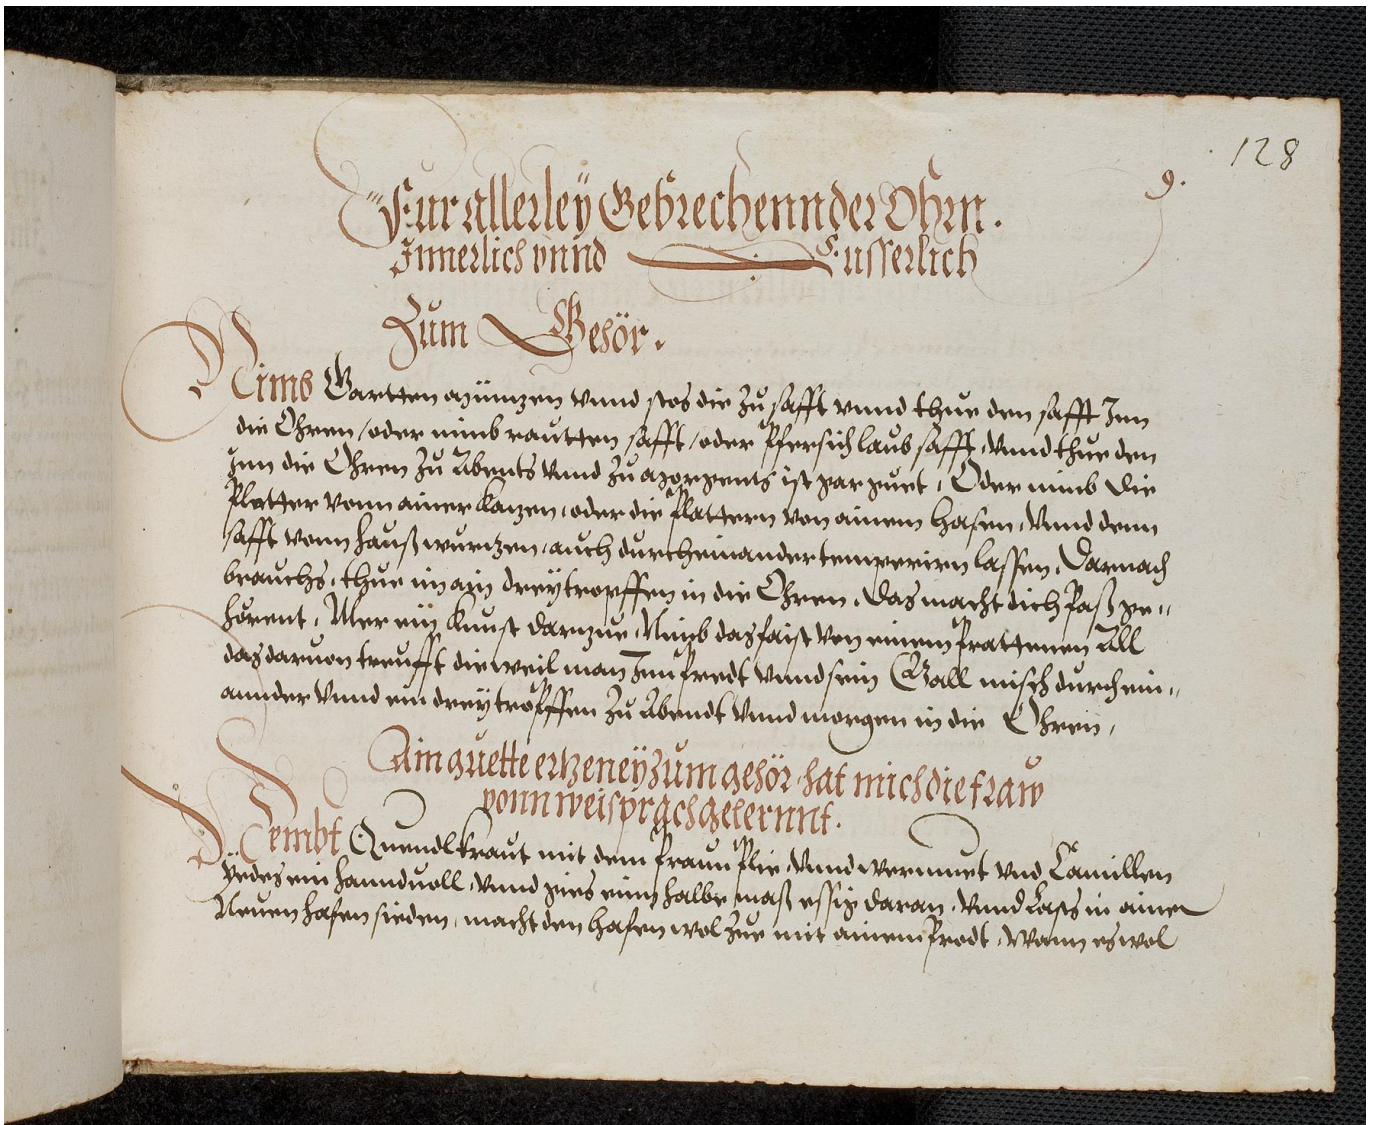 128
9.
Fur Allerley Gebrechenn der Ohrn.
Innerlich vnnd Eusserlich
Zum Gehör.
Nimb Gartten Müntzen vnnd stos die zu safft vnnd thue den safft Inn
die Ohren / oder nimb rautten safft / oder Pfersich laub safft, vnnd thue den
Inn die Ohren zu Abents vnnd zu Morgents ist gar guet, Oder nimb die
Platter vonn ainer Katzen, oder die Plattern von ainem hasen, vnnd denn
safft vonn haußwurtzen, auch durcheinander temperirn lassen, Darnach
brauchs, thue im ain drey tropffen in die Ohren, Das macht dich Paß ge„
hörent, Mer ein Kunst dartzue, Nimb das faist von einem Prattenen All
das daruon treufft die weil man Inn Predt vnnd sein Gall misch durch ein„
annder vnnd ein drey tropffen zu Abendt vnnd morgen in die Ohren,
Ain guette ertzeney zum gehör hat mich die fraw
vonn weisprach gelernnt.
Nembt Quendlkraut mit dem Praun Plie, vnnd wermuet vnd Camillen
Yedes ein hannduoll, vnnd gies einn halbe maß essig daran, vnnd Lass in ainen
Neuen hafen sieden, macht den hafen wol zue mit ainem Prodt, Wann es wol